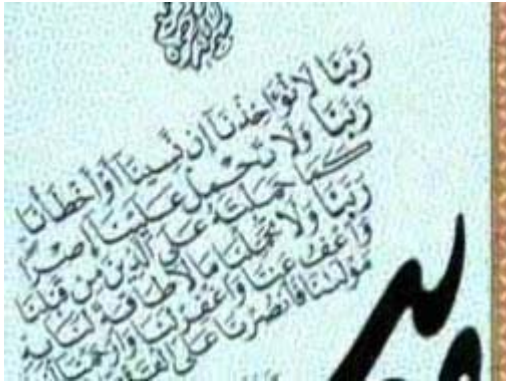 رَبَّنَا لَا تُؤَاخِذْنَآ إِن نَّسِينَآ أَوْ أَخْطَأْنَا
رَبَّنَا وَلَا تَحْمِلْ عَلَيْنَا إِصْرًا
كَمَا حَمَلْتَهُ عَلَى الَّذِينَ مِن قَبْلِنَا
رَبَّنَا وَلَا تُحَمِّلْنَا مَا لَا طَاقَةَ لَنَا بِهِ
وَاعْفُ عَنَّا وَاغْفِرْ لَنَا وَارْحَمْنَا
مَوْلَٰنَا فَانصُرْنَا عَلَى